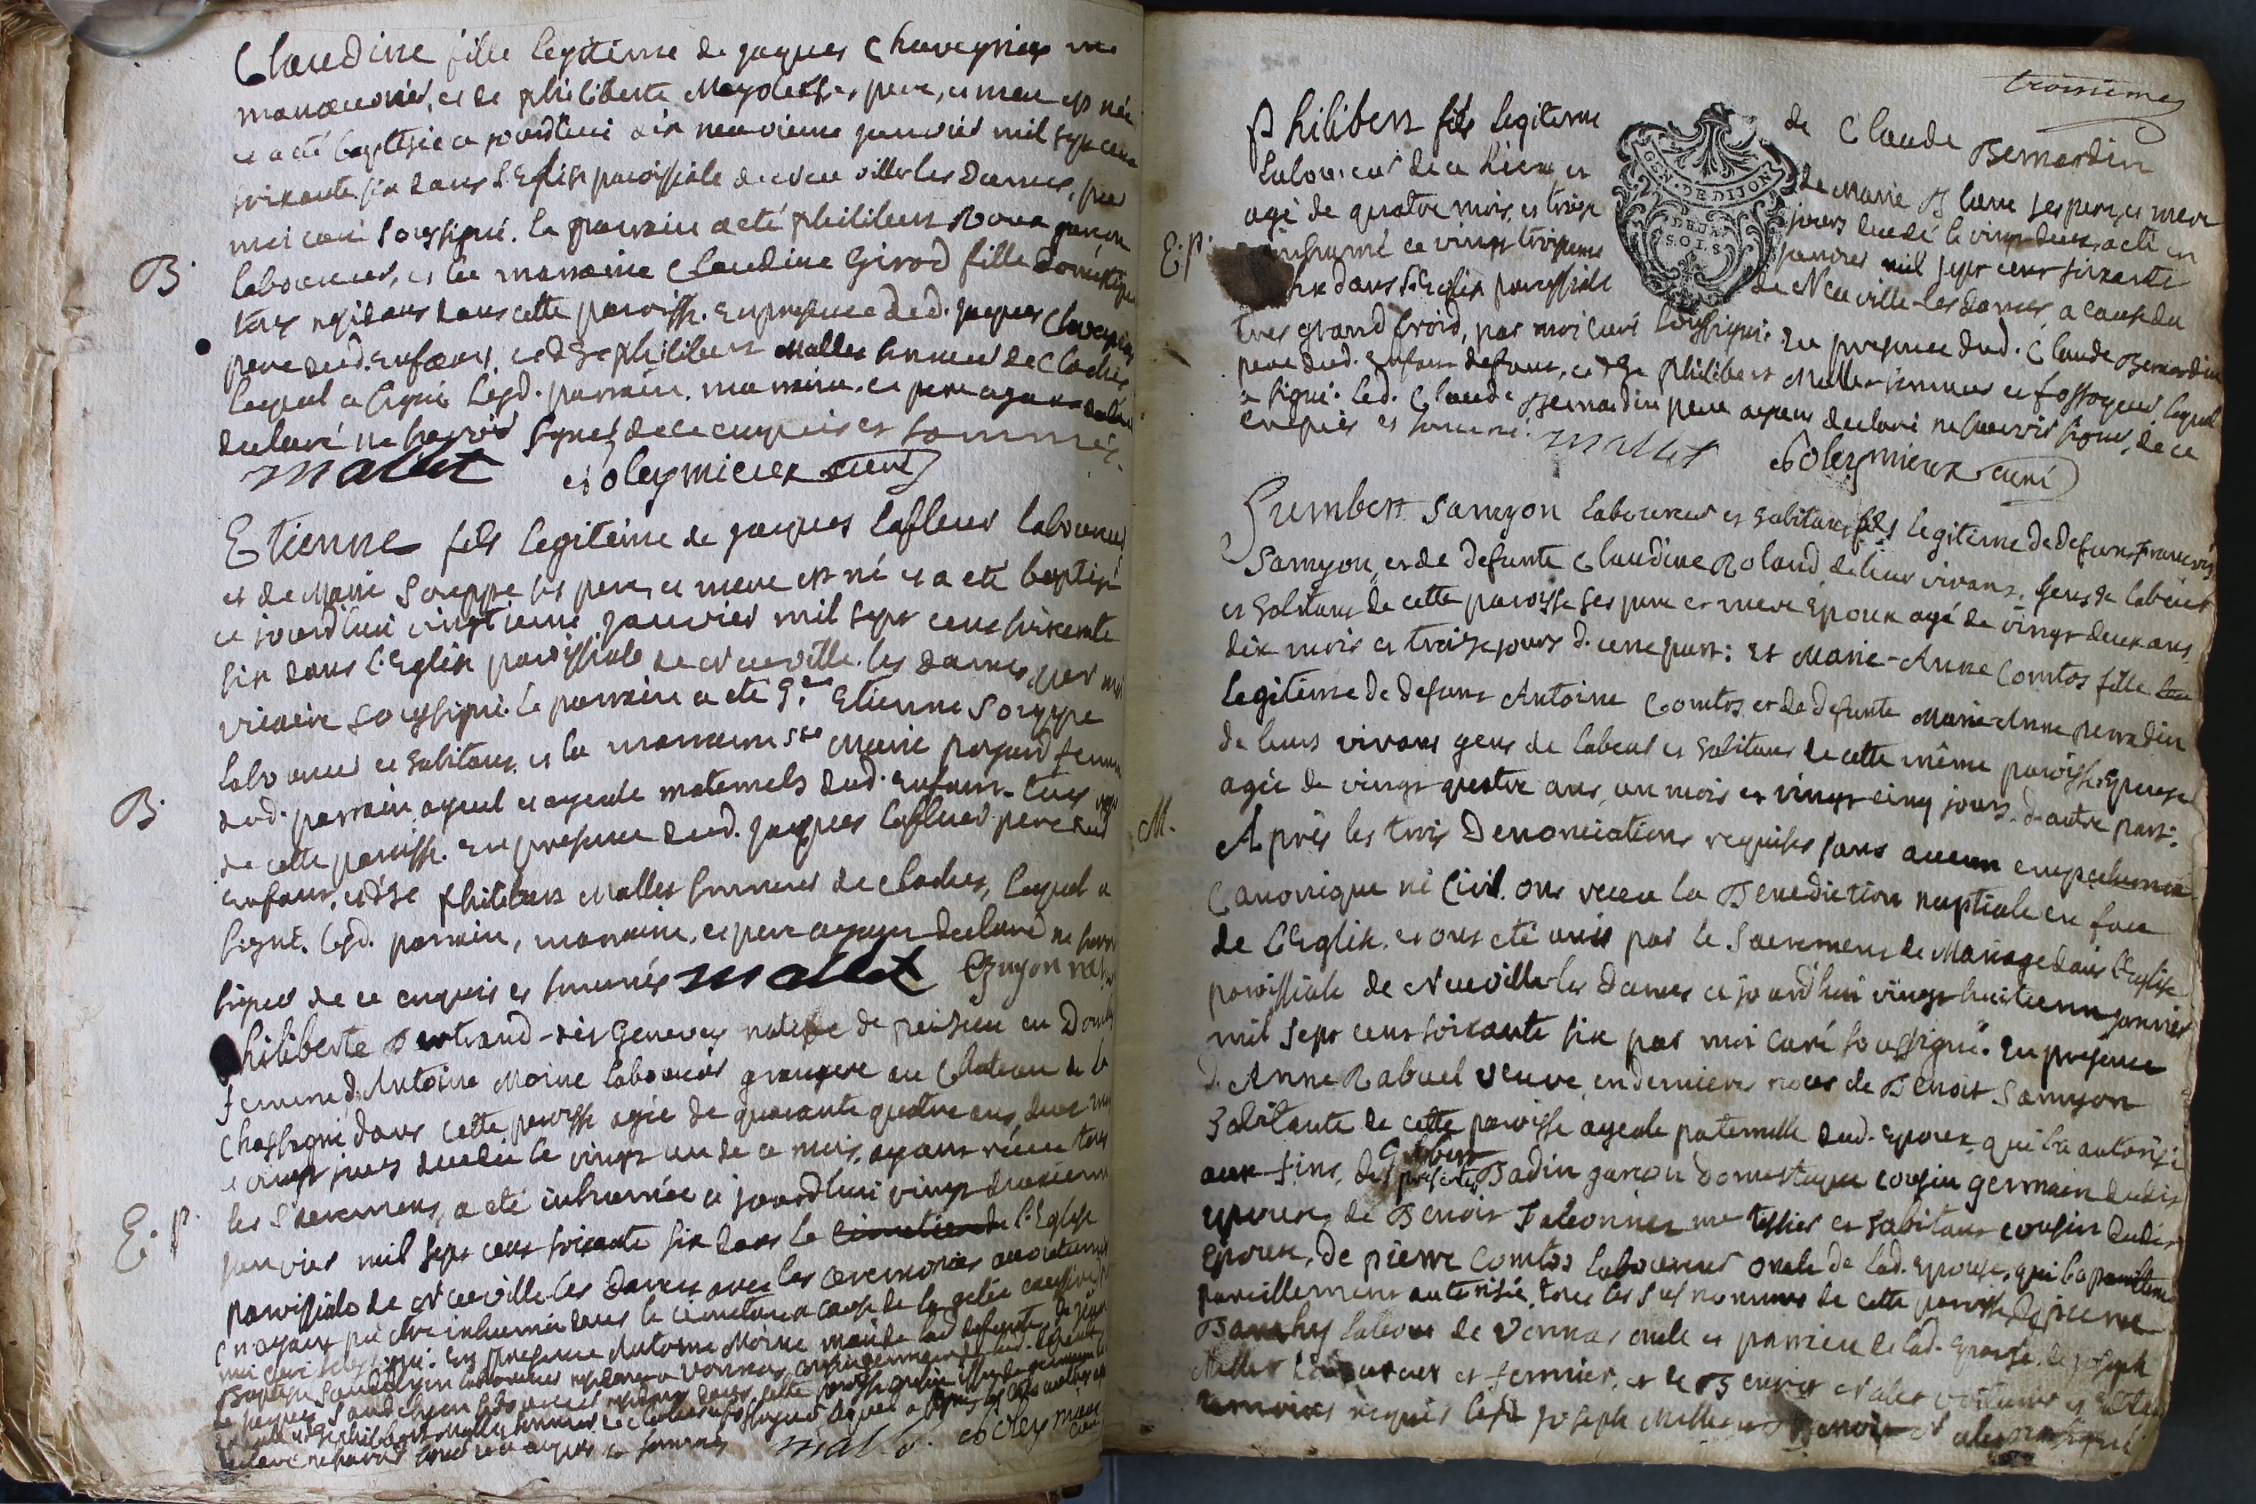 Claudine fille legitime de jaques Chaveyriat me
manœuvrier, et de philiberte Mayolet ses pere, et mere est née
et a été baptisée ce jourd'hui dix neuvieme janvier mil sept cent
soixante six dans l'Eglise paroissiale de Neuville les Dames, par
moi curé soussigné. Le parrain a été philibert Roux garçon
B.
laboureur, et la marraine Claudine Girod fille domestique
tous residans dans cette paroisse. En presence dud. jaques Chaveyriat
pere dud. enfant, et de philibert Mallet sonneur de Cloches
lequel a signé Lesd. parrain, marraine, et pere ayant
declaré ne savoir signer de ce enquis et sommés.
mallet Soleymieux curé
Etienne fils legitime de jaques Lafleur laboureur
et de Marie Souppe ses pere, et mere est né et a été baptisé
ce jourd'hui vingtieme janvier mil sept cent soixante
six dans l'Eglise paroissiale de Neuville les Dames, par moi
vicaire soussigné. le parrain a été Etienne Souppe
laboureur et habitant, et la marraine Marie poyard femme
B.
dud. parrain ayeul et ayeule maternels dud. enfant. tous
de cette paroisse. En presence dud. jaques Lafleur pere dud
enfant, et de philibert Mallet sonneur de Cloches, lequel a
signé. Lesd. parrain, marraine, et pere ayant declaré ne savoir
signer de ce enquis et sommés mallet Guyon
philiberte Bertrand dit Genevey native de peizieu en Dombes
femme d'Antoine Moine laboureur granger au Chateau de la
Chassagne dans cette paroisse agée de quarante quatre ans, deux
et vingt jours decedée le vingt un de ce mois, ayant recue tous
les Sacremens, a été inhumée ce jourd'hui vingt deuxieme
E. P.
janvier mil sept cent soixante six dans le cimetiere de l'Eglise
paroissiale de Neuville les Dames avec les ceremonies accoutumées
n'ayant pu etre inhumée dans le cimetiere a cause de la gelée excessive
moi curé soussigné. En presence Antoine Moine mari de lad. defunte, de
Baptiste laboureur residant a Vonnas
de jaques laboureur residant dans cette paroisse
et de philibert Mallet sonneur de cloches et fossoyeur lequel a signé
declaré ne savoir signer de ce enquis et sommés mallet. Soleymieux
curé
troisieme
Philibert fils legitime de Claude Bernardin
GEN. DE DIJON
DEUX
SOLS
laboureur de ce lieu, et de Marie Blanc ses pere, et mere
agé de quatre mois, et treize jours decedé le vingt deux, a été
E. P.
inhumé ce vingt troisieme janvier mil sept cent soixante
six dans l'Eglise paroissiale de Neuville les Dames, a cause du
tres grand froid, par moi curé soussigné. En presence dud. Claude Bernardin
pere dud. enfant defunt, et de philibert Mallet sonneur et fossoyeur lequel
a signé. Led. Claude Bernardin pere ayant declaré ne savoir signer, de ce
enquis et sommé. mallet Soleymieux curé
Humbert Samyon laboureur et habitant, fils legitime de defunt François
Samyon, et de defunte Claudine Roland de leur vivant, gens de labeur
et habitans de cette paroisse ses pere et mere Epoux agé de vingt deux ans,
dix mois et treize jours d'une part: Et Marie-Anne Comtos fille
legitime de defunt Antoine Comtos et de defunte Marie Anne perradin
de leurs vivans gens de labeur et habitans de cette même paroisse Epouse
agée de vingt quatre ans, un mois et vingt cinq jours, d'autre part:
M.
Après les trois Denonciations requises sans aucun empechement
Canonique ni Civil ont receu la Benediction nuptiale en face
de l'Eglise, et ont été unis par le Sacrement de Mariage dans l'Eglise
paroissiale de Neuville les Dames ce jourd'hui vingt huitieme janvier
mil sept cent soixante six par moi curé soussigné. En presence
d'Anne Rabuel veuve en dernieres noces de Benoit Samyon
habitante de cette paroisse ayeule paternelle dud. Epoux, qui l'a autorisé
aux fins, des presentes Gilbert Badin garçon domestique cousin germain dudit
Epoux, de Benoit Faleonnier me tissier et habitant cousin dudit
Epoux, de pierre Comtos laboureur oncle de lad. Epouse, qui l'a
pareillement autorisée, tous les sus nommés de cette paroisse, de pierre
laboureur de Vonnas oncle et parrain de lad. Epouse, de joseph
Millet laboureur et fermier, et de Benoit voiturier et habitant
temoins requis lesd. joseph Millet et Benoit